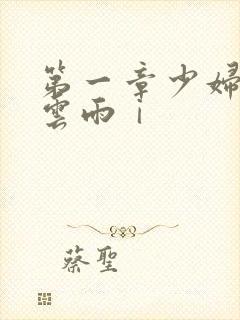 第一章少婦
雲雨｜
蔡聖